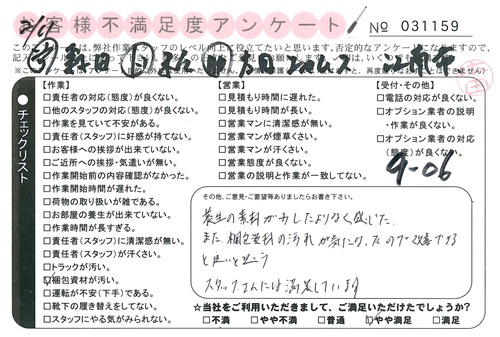 お客様不満足度アンケート
№ 031159
【作業】
□責任者の対応(態度)が良くない。
□他のスタッフの対応(態度)が良くない。
□作業を見ていて不安がある。
□責任者(スタッフ)に好感が持てない。
□お客様への挨拶が出来ていない。
□ご近所への挨拶・気遣いが無い。
□作業開始前の内容確認がなかった。
□作業開始時間が遅れた。
□荷物の取り扱いが雑である。
□お部屋の養生が出来ていない。
□作業時間が長すぎる。
□責任者(スタッフ)に清潔感が無い。
□責任者(スタッフ)が汗くさい。
□トラックが汚い。
☑梱包資材が汚い。
□運転が不安(下手)である。
□靴下の履き替えをしてない。
□スタッフにやる気がみられない。
【営業】
□見積もり時間に遅れた。
□見積もり時間が長い。
□営業マンに清潔感が無い。
□営業マンが煙草くさい。
□営業マンが汗くさい。
□営業態度が良くない。
□営業の説明と作業が一致してない。
【受付・その他】
□電話の対応が良くない。
□オプション業者の説明
・作業が良くない。
□オプション業者の対応
(態度)が良くない。
9-06
チェックリスト
その他、ご意見・ご要望等ありましたらお書き下さい。
養生の素料が少したよりなく感じた。
また、梱包資料の汚れが気になったので改善できる
と良いと思う
スタッフさんには満足しています
★当社をご利用いただきまして、ご満足いただけたでしょうか?
□不満 □やや不満 □普通 ☑やや満足 □満足